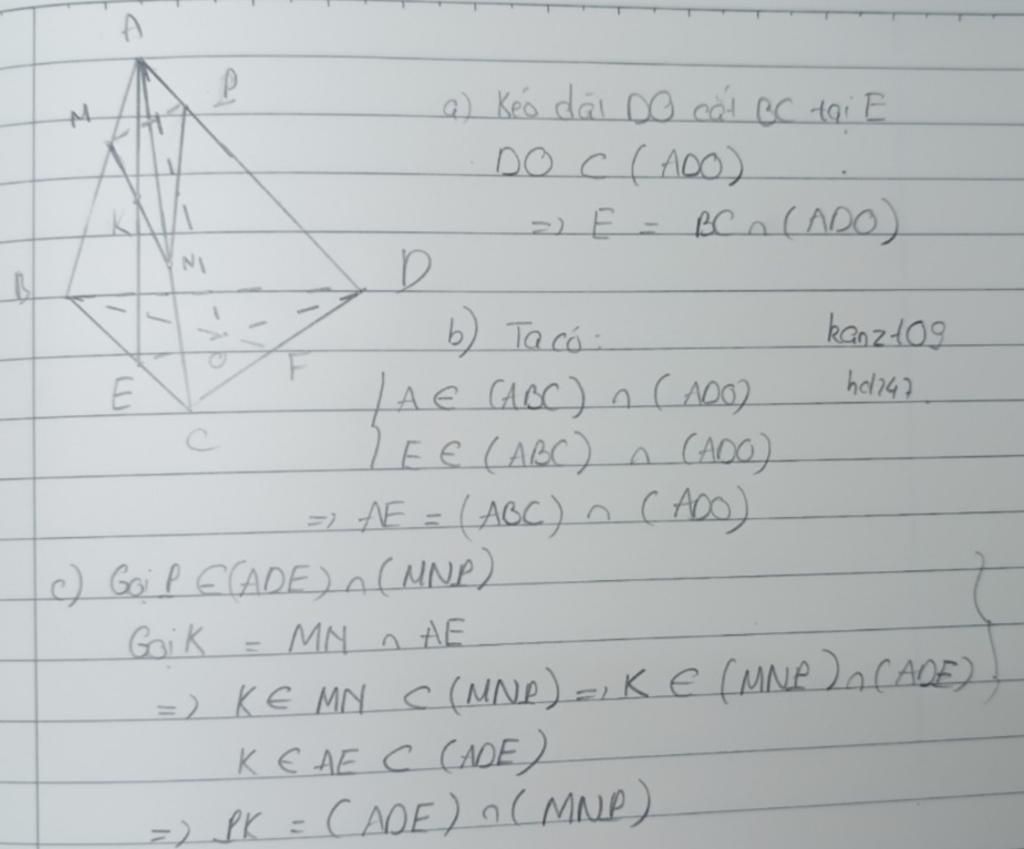 A
P
M
K
N
B
D
O
E
F
C
a) Kéo dài DO cắt BC tại E
DO ⊂ (ADO)
=> E = BC ∩ (ADO)
b) Ta có:
kanz109
A ∈ (ABC) ∩ (ADO)
hdz47
E ∈ (ABC) ∩ (ADO)
=> AE = (ABC) ∩ (ADO)
c) Gọi P ∈ (ADE) ∩ (MNP)
Gọi K = MN ∩ AE
=> K ∈ MN ⊂ (MNP) => K ∈ (MNP) ∩ (ADE)
K ∈ AE ⊂ (ADE)
=> PK = (ADE) ∩ (MNP)